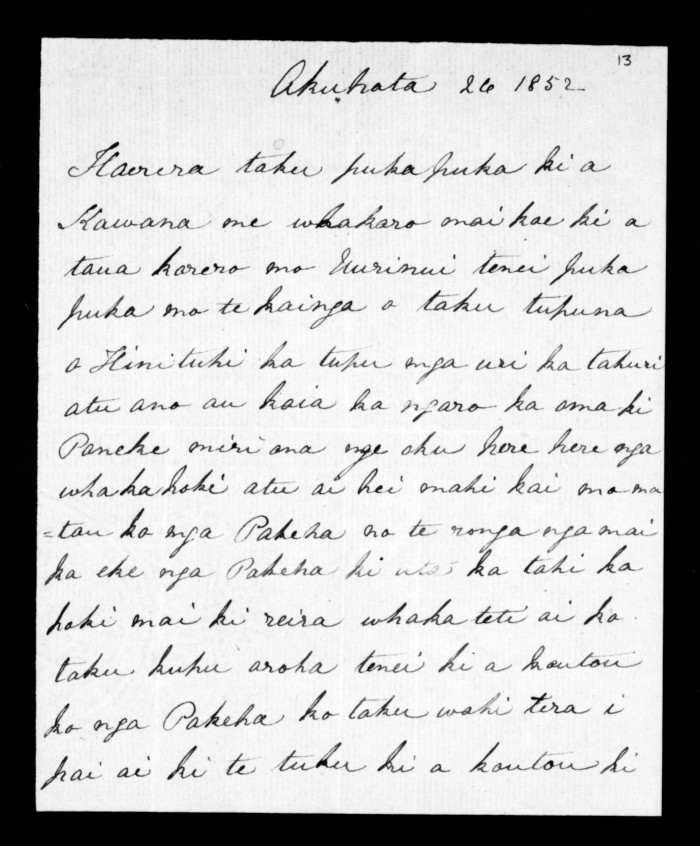 13
Akuhata 26 1852
Haerera taku puka puka ki a
Kawana me whakaro mai koe ki a
taua korero mo Uurinui tenei puka
puka mo te kainga o taku tupuna
o Hinituhi ka tupu nga uri ka tahuri
atu ano au koia ka ngaro ka oma ki
Poneke miri ona nge oku here here nga
whakahoki atu ai hei mahi kai mo ma
=tau ko nga Pakeha no te ronga nga mai
ka eke nga Pakeha ki uta ka tahi ka
hoki mai ki reira whaka teti ai ko
taku kupu aroha tenei ki a koutou
ko nga Pakeha ko taku wahi tera i
pai ai ki te tuku ki a koutou ki